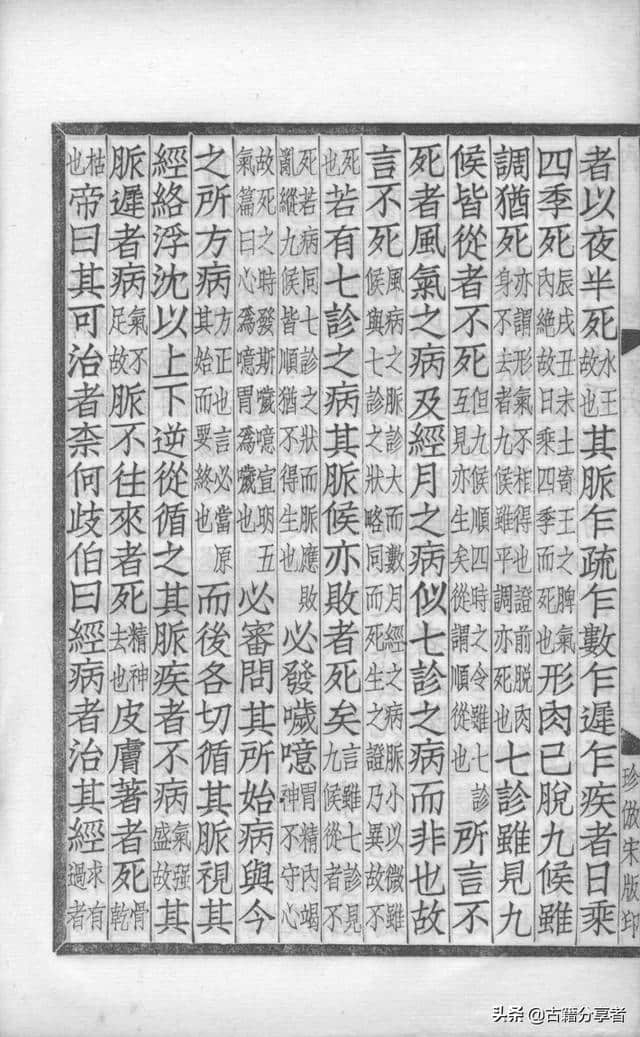 者以夜半死水王故也其脈乍疏乍數乍遲乍疾者日乘
四季死辰戌丑未土寄王之脾氣內絕故日乘四季而死也形肉已脫九候雖
調猶死亦謂形氣不相得也證前脫肉身不去者九候雖平調亦死也七診雖見九
候皆從者不死但九候順四時之令雖七診互見亦生矣從謂順從也所言不
死者風氣之病及經月之病似七診之病而非也故
言不死風病之脈診大而數月經之病脈小以微雖候與七診之狀略同而死生之證乃異故不
死也若有七診之病其脈候亦敗者死矣言雖七診見九候從者不
死若病同七診之狀而脈應敗亂縱九候皆順猶不得生也必發噦噫胃精內竭神不守心
故死之時發斯噦噫宣明五氣篇曰心爲噫胃爲噦也必審問其所始病與今
之所方病方正也言必當原其始而要終也而後各切循其脈視其
經絡浮沈以上下逆從循之其脈疾者不病氣强盛故其
脈遲者病氣不足故脈不往來者死精神去也皮膚著者死骨乾
枯也帝曰其可治者柰何歧伯曰經病者治其經求有過者
珍倣宋版印
头条 @古籍分享者